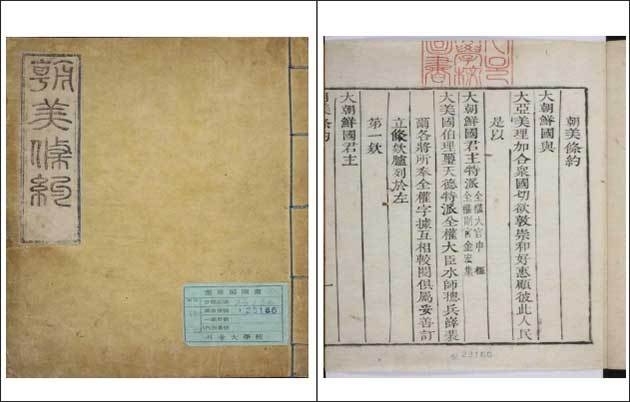 朝美條約
奎章閣圖書
大學校
朝美條約
大朝鮮國與
大亞美理加合衆國切欲敦崇和好惠顧彼此人民
是以
大朝鮮國君主特派全權大官申櫶全權副官金宏集
大美國伯理璽天德特派全權大臣水師總兵薛裴
爾各將所奉全權字據互相較閱俱屬妥善訂
立條欵臚列於左
第一欵
大朝鮮國君主
23166